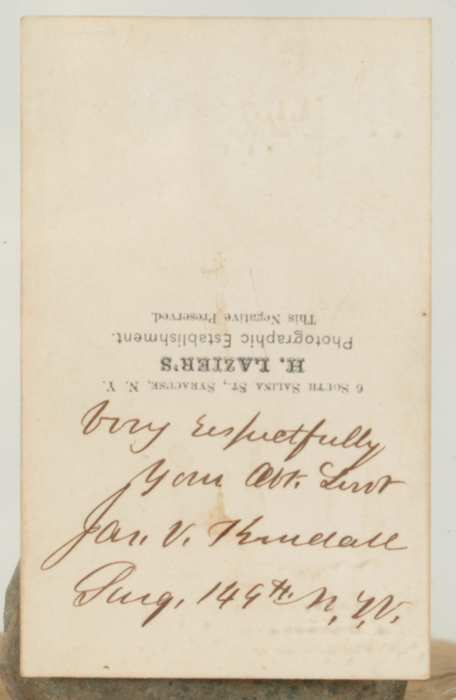 6 SOUTH SALINA ST., SYRACUSE, N. Y.
H. LAZIER'S
Photographic Establishment.
This Negative Preserved.
Very respectfully
Your Obt. Servt
Jas. V. Kendall
Surg. 149th N.Y.V.